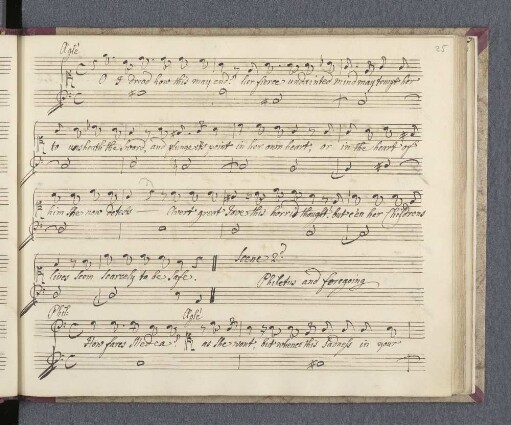 25
Aglé
O I dread how this may end. her fierce undaunted mind may tempt her
to unsheath the Sword, and plunge its point in her own heart; or in the heart of
him She now detests Avert great Jove this horrid thought! but e'en her Childrens
lives seem scarcely to be Safe.
Scene 2d
Philetus and foregoing
Phil:
Aglé
How fares Medea? as She wont, but whence this Sadness in your